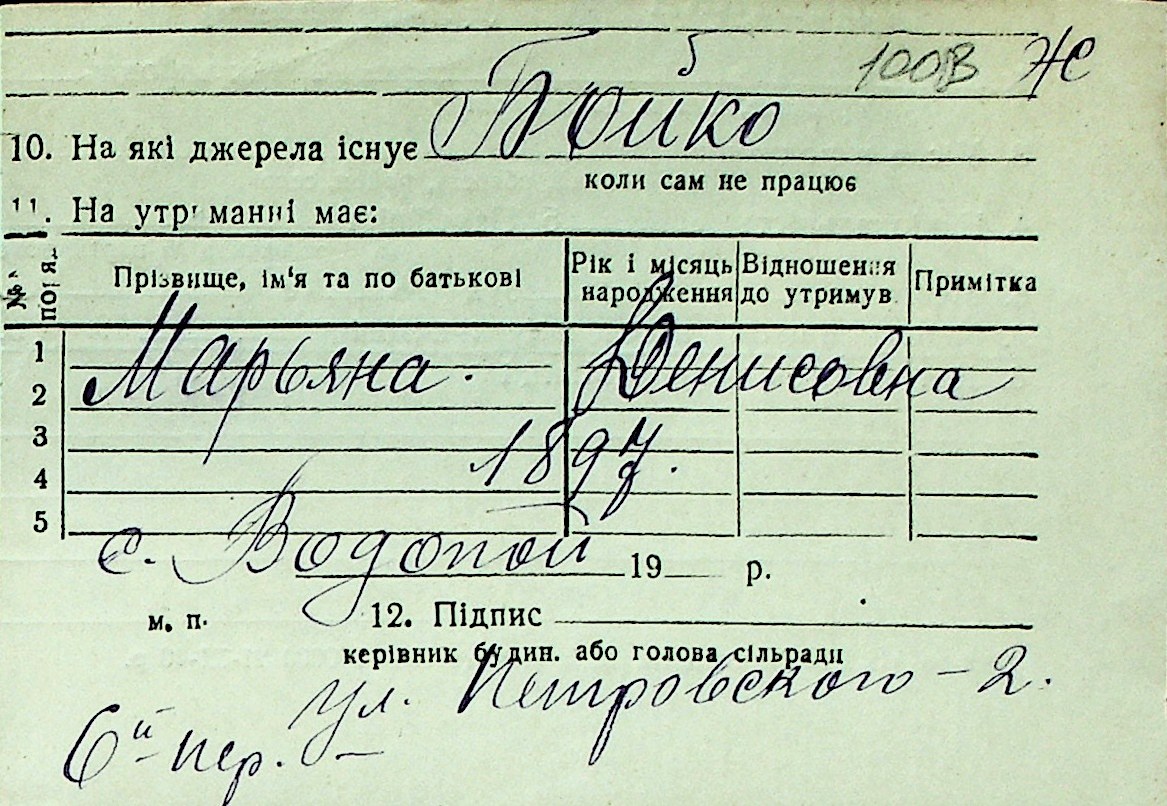 100В Ж
Бойко
10. На які джерела існує
коли сам не працює
11. На утриманні має:
№№ по ря.
Прізвище, ім'я та по батькові
Рік і місяць народження
Відношення до утримув
Примітка
1
2 Марьяна. Денисовна
3
4 1897.
5
с. Водопой 19 р.
м. п. 12. Підпис
керівник будин. або голова сільради
ул. Петровского - 2.
6й пер. -